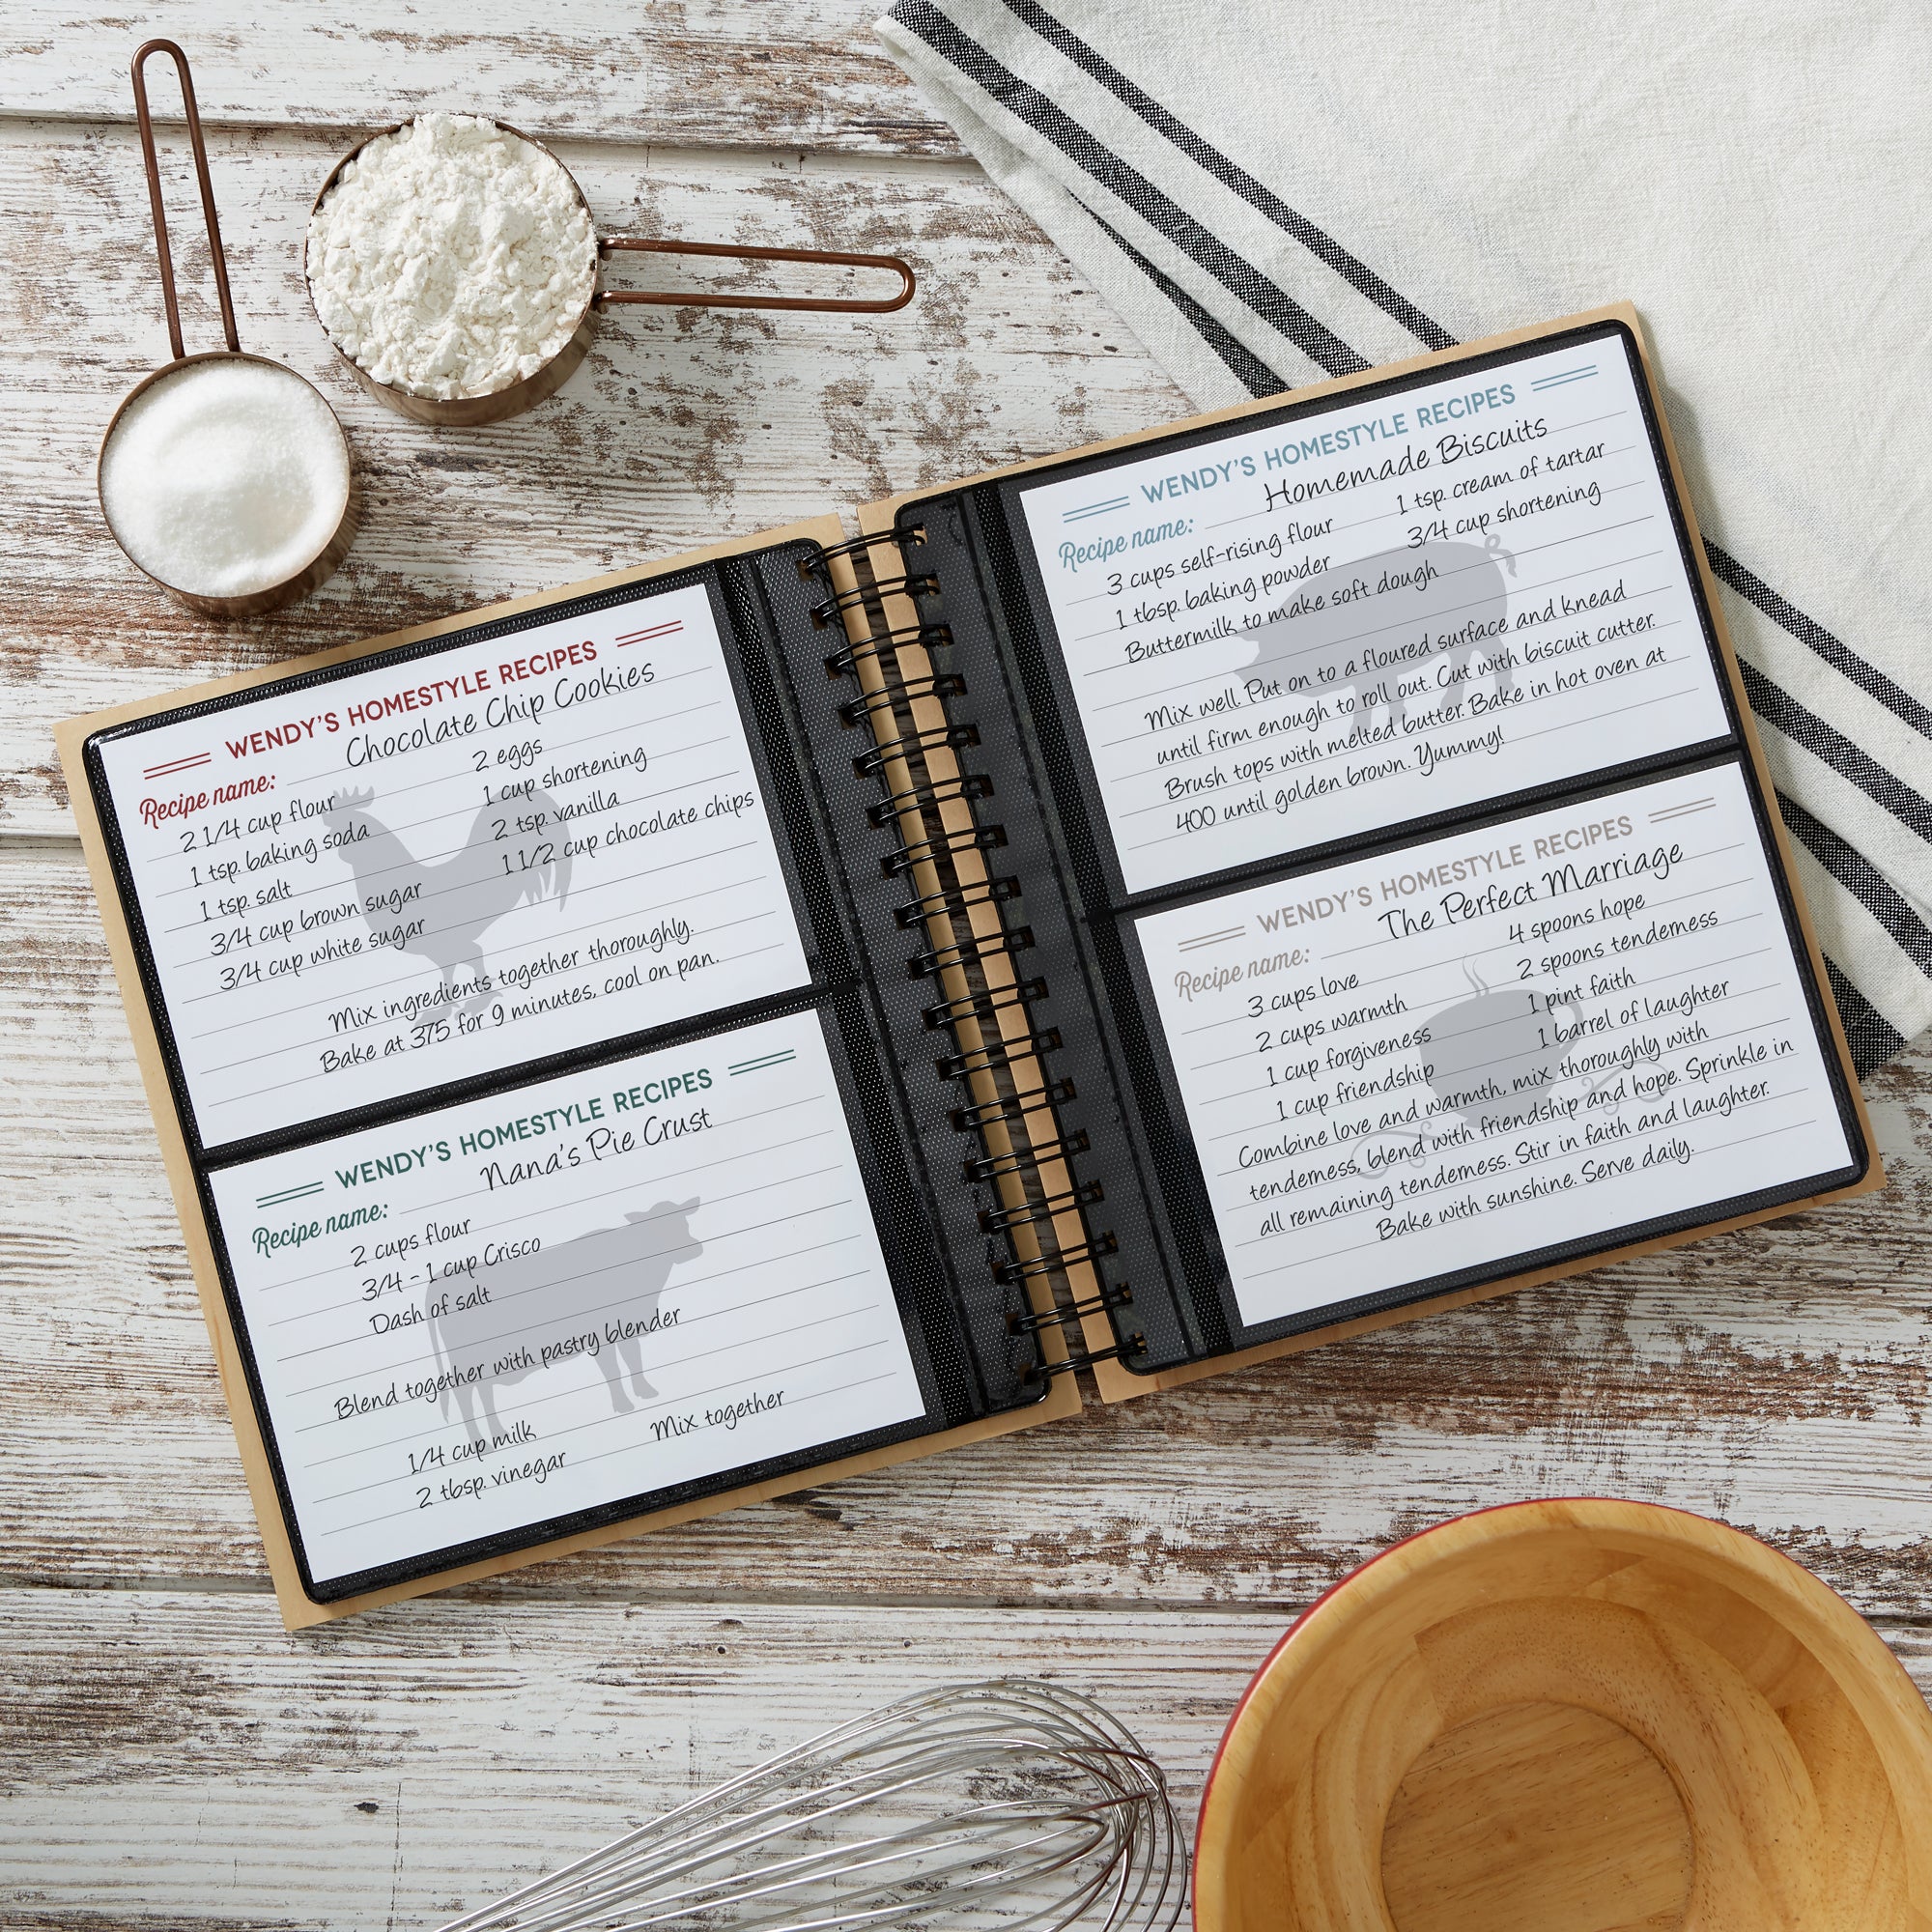 WENDY'S HOMESTYLE RECIPES
Recipe name: Chocolate Chip Cookies
2 1/4 cup flour
1 tsp. baking soda
1 tsp. salt
3/4 cup brown sugar
3/4 cup white sugar
2 eggs
1 cup shortening
2 tsp. vanilla
1 1/2 cup chocolate chips
Mix ingredients together thoroughly.
Bake at 375 for 9 minutes, cool on pan.
WENDY'S HOMESTYLE RECIPES
Recipe name: Nana's Pie Crust
2 cups flour
3/4 - 1 cup Crisco
Dash of salt
Blend together with pastry blender
1/4 cup milk
2 tbsp. vinegar
Mix together
WENDY'S HOMESTYLE RECIPES
Recipe name: Homemade Biscuits
3 cups self-rising flour
1 tbsp. baking powder
Buttermilk to make soft dough
1 tsp. cream of tartar
3/4 cup shortening
Mix well. Put on to a floured surface and knead
until firm enough to roll out. Cut with biscuit cutter.
Brush tops with melted butter. Bake in hot oven at
400 until golden brown. Yummy!
WENDY'S HOMESTYLE RECIPES
Recipe name: The Perfect Marriage
3 cups love
2 cups warmth
1 cup forgiveness
1 cup friendship
4 spoons hope
2 spoons tenderness
1 pint faith
1 barrel of laughter
Combine love and warmth, mix thoroughly with
tenderness, blend with friendship and hope. Sprinkle in
all remaining tenderness. Stir in faith and laughter.
Bake with sunshine. Serve daily.